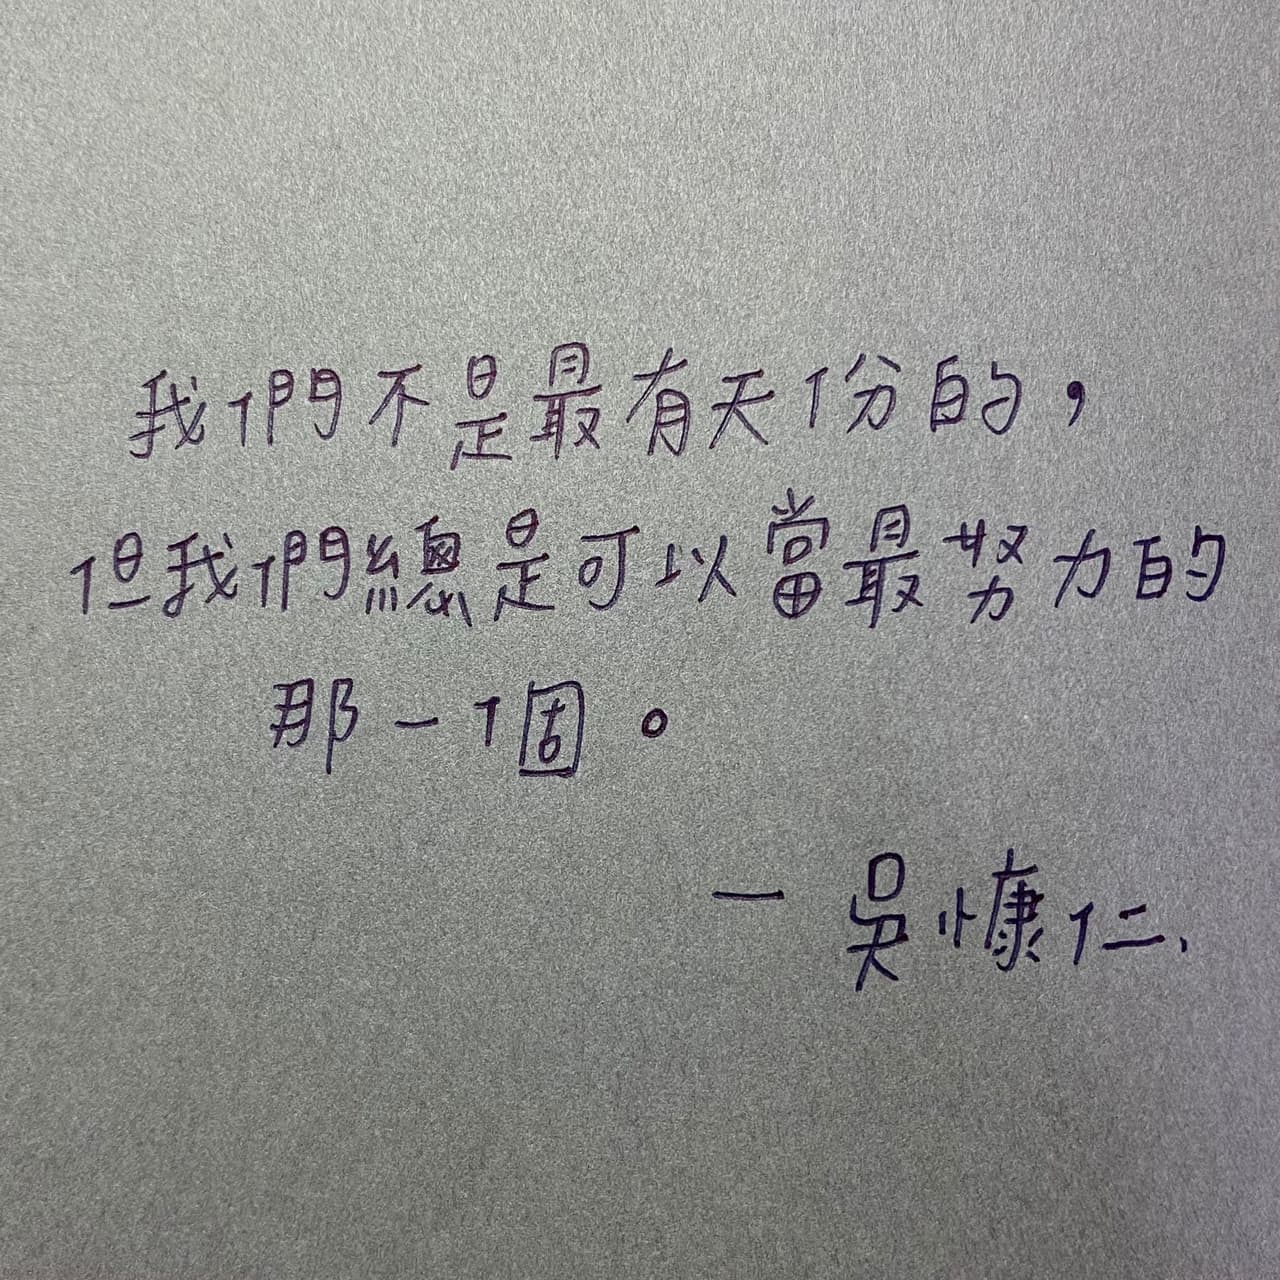 我們不是最有天份的，
但我們總是可以當最努力的
那一個。
— 吳慷仁